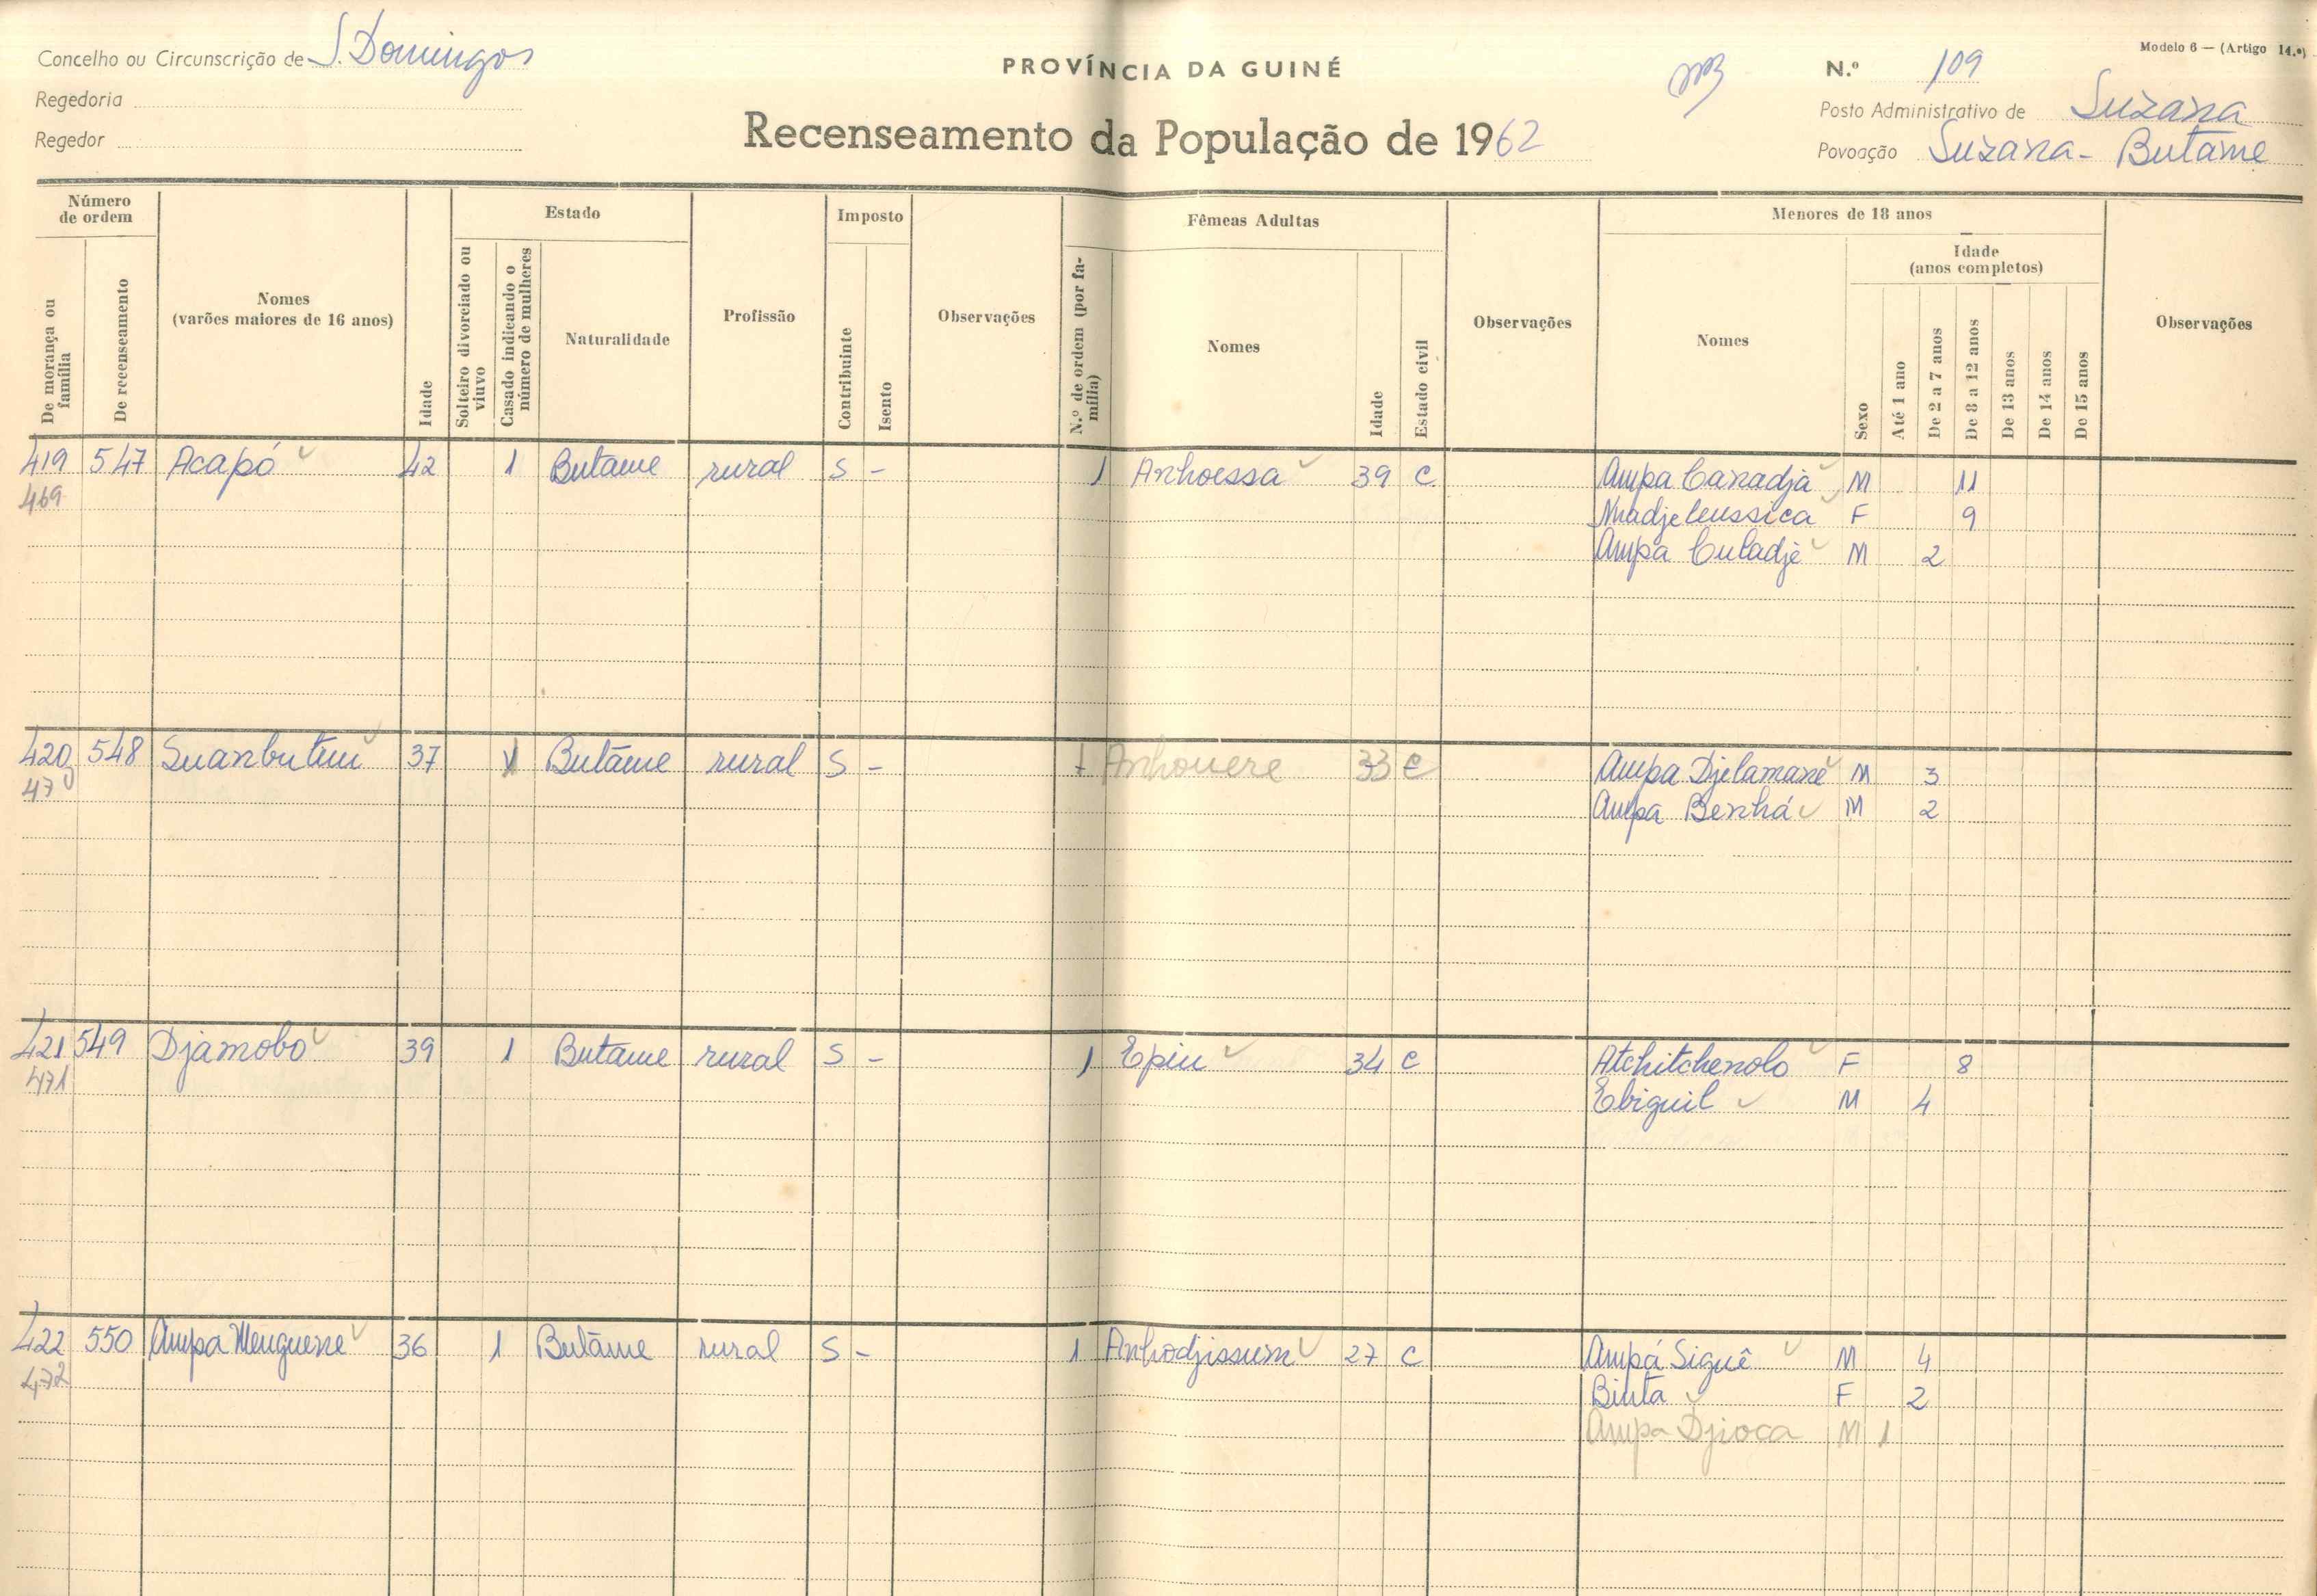 Modelo 6 — (Artigo 14.º)
Concelho ou Circunscrição de S. Domingos
PROVÍNCIA DA GUINÉ
N.º 109
Regedoria
Posto Administrativo de Suzana
Regedor
Recenseamento da População de 1962
Povoação Suzana - Butame
Número de ordem
De morança ou família
De recenseamento
Nomes
(varões maiores de 16 anos)
Idade
Estado
Solteiro divorciado ou viuvo
Casado indicando o número de mulheres
Naturalidade
Profissão
Imposto
Contribuinte
Isento
Observações
N.º de ordem (por família)
Fêmeas Adultas
Nomes
Idade
Estado civil
Observações
Menores de 18 anos
Nomes
Sexo
Idade
(anos completos)
Até 1 ano
De 2 a 7 anos
De 8 a 12 anos
De 13 anos
De 14 anos
De 15 anos
Observações
419 547 Acapó 42 1 Butame rural S - 1 Anhoessa 39 C Ampa Canadja M 11
469 F 9
Ampa Culadje M 2
420 548 37 Butāme rural S - 1 Anhouere 33 C Ampa Djelamane M 3
470 Ampa Benhá M 2
421 549 Djamobo 39 1 Butame rural S - 1 Epiu 34 C Atchitchenolo F 8
471 Ebiguil M 4
422 550 Ampa Menguene 36 1 Butāme rural S - 1 Anhodjissum 27 C Ampá Siguê M 4
472 Binta F 2
Ampa Djioca M 1